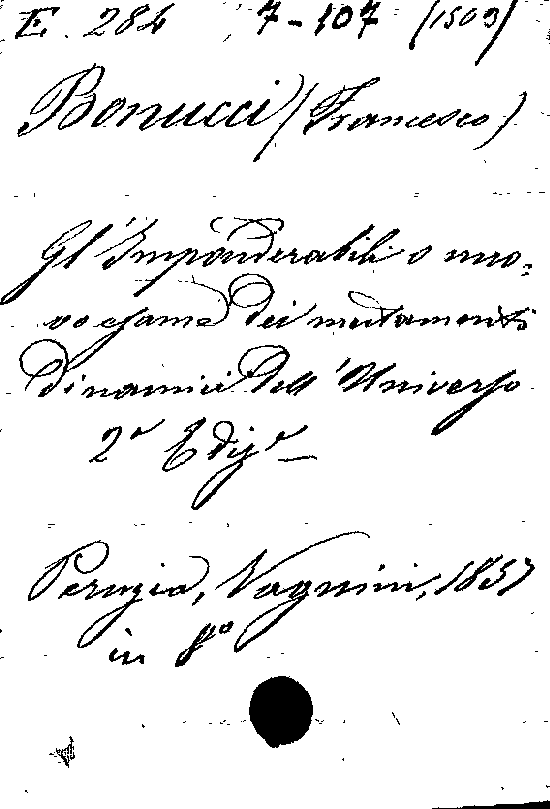 E. 284 7-107 (1509)
Bonucci (Francesco)
Gl'Imponderabili o nuo-
vo esame dei mutamenti
dinamici dell'Universo
2a Edize
Perugia, Vagnini, 1857
in 8o